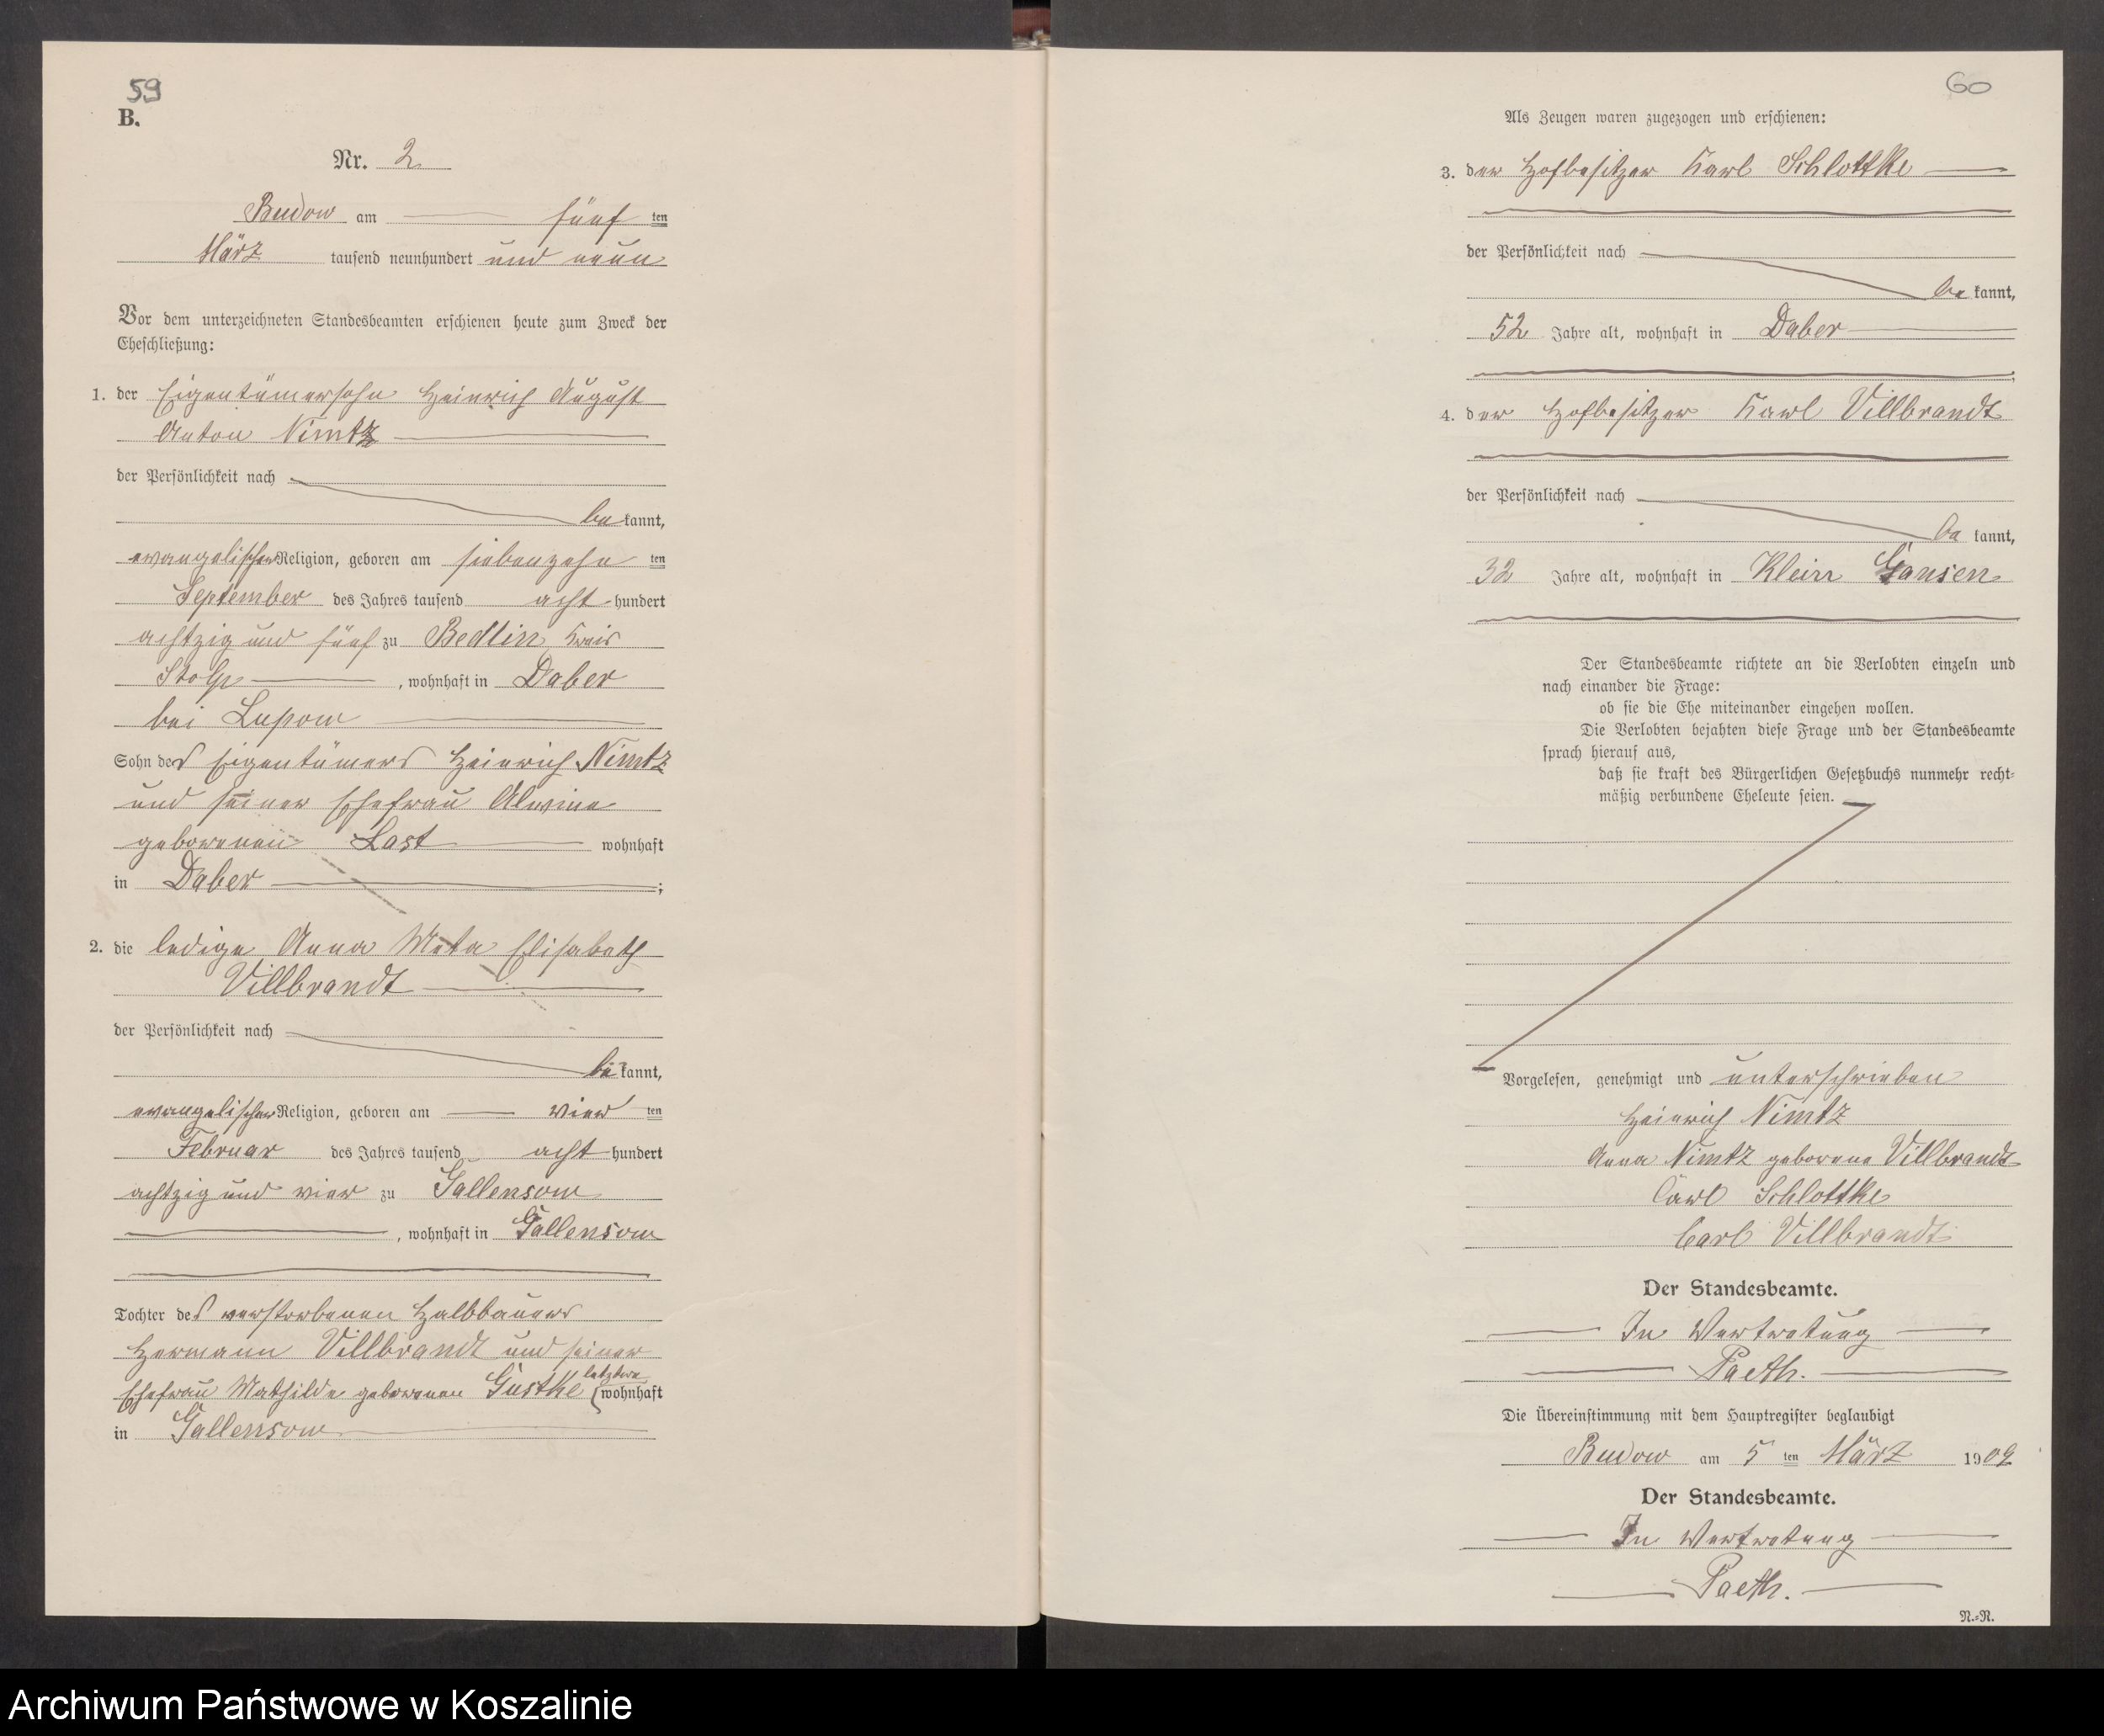 59
B.
Nr. 2
Budow am fünf ten
März tausend neunhundert und neun
Vor dem unterzeichneten Standesbeamten erschienen heute zum Zweck der
Eheschließung:
1. der Eigentümersohn Heinrich August
Anton Nimtz
der Persönlichkeit nach
be kannt,
evangelischer Religion, geboren am siebenzehn ten
September des Jahres tausend acht hundert
achtzig und fünf zu Bedlin, Kreis
Stolp , wohnhaft in Daber
bei Lupow
Sohn des Eigentümers Heinrich Nimtz
und seiner Ehefrau Alwine
geborenen Last wohnhaft
in Daber ;
2. die ledige Anna Meta Elisabeth
Villbrandt
der Persönlichkeit nach
be kannt,
evangelischer Religion, geboren am vier ten
Februar des Jahres tausend acht hundert
achtzig und vier zu Gallensow
, wohnhaft in Gallensow
Tochter des verstorbenen Halbbauers
Hermann Villbrandt und seiner
letztere
Ehefrau Mathilde geborenen Gustke wohnhaft
in Gallensow
60
Als Zeugen waren zugezogen und erschienen:
3. der Hofbesitzer Karl Schlottke
der Persönlichkeit nach
be kannt,
52 Jahre alt, wohnhaft in Daber
4. der Hofbesitzer Karl Villbrandt
der Persönlichkeit nach
be kannt,
32 Jahre alt, wohnhaft in Klein Gansen
Der Standesbeamte richtete an die Verlobten einzeln und
nach einander die Frage:
ob sie die Ehe miteinander eingehen wollen.
Die Verlobten bejahten diese Frage und der Standesbeamte
sprach hierauf aus,
daß sie kraft des Bürgerlichen Gesetzbuchs nunmehr recht-
mäßig verbundene Eheleute seien.
Vorgelesen, genehmigt und unterschrieben
Heinrich Nimtz
Anna Nimtz geborene Villbrandt
Carl Schlottke
Carl Villbrandt
Der Standesbeamte.
In Vertretung
Paeth.
Die Übereinstimmung mit dem Hauptregister beglaubigt
Budow am 5 ten März 1909
Der Standesbeamte.
In Vertretung
Paeth.
N.-N.
Archiwum Państwowe w Koszalinie